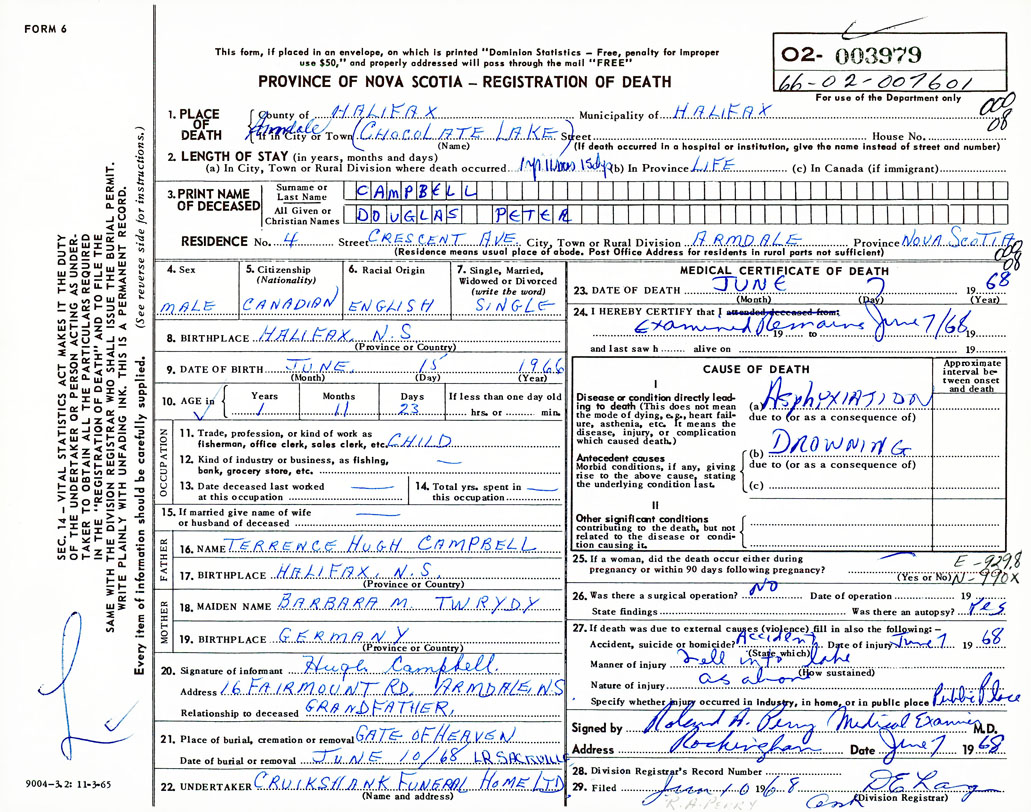 FORM 6
This form, if placed in an envelope, on which is printed "Dominion Statistics – Free, penalty for improper
use $50," and properly addressed will pass through the mail "FREE"
PROVINCE OF NOVA SCOTIA – REGISTRATION OF DEATH
02- 003979
66-02-007601
For use of the Department only
008
08
1. PLACE OF DEATH
County of HALIFAX Municipality of HALIFAX
Armdale
If in City or Town (CHOCOLATE LAKE) Street House No.
(Name) (If death occurred in a hospital or institution, give the name instead of street and number)
2. LENGTH OF STAY (in years, months and days)
(a) In City, Town or Rural Division where death occurred (b) In Province LIFE (c) In Canada (if immigrant)
3. PRINT NAME OF DECEASED
Surname or Last Name CAMPBELL
All Given or Christian Names DOUGLAS PETER
RESIDENCE No. 4 Street CRESCENT AVE. City, Town or Rural Division ARMDALE Province NOVA SCOTIA
(Residence means usual place of abode. Post Office Address for residents in rural parts not sufficient)
008
08
4. Sex
MALE
5. Citizenship (Nationality)
CANADIAN
6. Racial Origin
ENGLISH
7. Single, Married, Widowed or Divorced (write the word)
SINGLE
8. BIRTHPLACE HALIFAX, N.S
(Province or Country)
9. DATE OF BIRTH JUNE 15 1966
(Month) (Day) (Year)
10. AGE in Years Months Days If less than one day old
1 11 23 hrs. or min.
OCCUPATION
11. Trade, profession, or kind of work as
fisherman, office clerk, sales clerk, etc. CHILD
12. Kind of industry or business, as fishing,
bank, grocery store, etc.
13. Date deceased last worked
at this occupation
14. Total yrs. spent in
this occupation
15. If married give name of wife
or husband of deceased
FATHER
16. NAME TERRENCE HUGH CAMPBELL
17. BIRTHPLACE HALIFAX, N.S.
(Province or Country)
MOTHER
18. MAIDEN NAME BARBARA M. TWRYDY
19. BIRTHPLACE GERMANY
(Province or Country)
20. Signature of informant Hugh Campbell.
Address 16 FAIRMOUNT RD. ARMDALE, NS
Relationship to deceased GRANDFATHER.
21. Place of burial, cremation or removal GATE OF HEAVEN
Date of burial or removal JUNE 10/68 LR SACKVILLE
22. UNDERTAKER CRUIKSHANK FUNERAL HOME LTD
(Name and address)
MEDICAL CERTIFICATE OF DEATH
23. DATE OF DEATH JUNE 7 1968
(Month) (Day) (Year)
24. I HEREBY CERTIFY that I attended deceased from:
Examined Remains June 7/68
19 to 19
and last saw h alive on 19
CAUSE OF DEATH
Approximate interval between onset and death
I
Disease or condition directly leading to death (This does not mean the mode of dying, e.g., heart failure, asthenia, etc. It means the disease, injury, or complication which caused death.)
(a) ASPHYXIATION
due to (or as a consequence of)
(b) DROWNING
due to (or as a consequence of)
(c)
Antecedent causes
Morbid conditions, if any, giving rise to the above cause, stating the underlying condition last.
II
Other significant conditions
contributing to the death, but not related to the disease or condition causing it.
25. If a woman, did the death occur either during
pregnancy or within 90 days following pregnancy?
(Yes or No)
E-929.8
N-990X
26. Was there a surgical operation? NO Date of operation 19
State findings Was there an autopsy? Yes
27. If death was due to external causes (violence) fill in also the following:–
Accident, suicide or homicide? Accident Date of injury June 7 1968
(State which)
Manner of injury Fell into lake
(How sustained)
Nature of injury as above
Specify whether injury occurred in industry, in home, or in public place Public Place
Signed by Roland A. Perry Medical Examiner M.D.
Address Rockingham Date June 7 1968
28. Division Registrar's Record Number
29. Filed Jun 10 1968
(Division Registrar)
R.A. PERRY
SEC. 14 – VITAL STATISTICS ACT MAKES IT THE DUTY
OF THE UNDERTAKER OR PERSON ACTING AS UNDERTAKER TO OBTAIN ALL THE PARTICULARS REQUIRED
IN THE "REGISTRATION OF DEATH" AND TO FILE THE
SAME WITH THE DIVISION REGISTRAR WHO SHALL ISSUE THE BURIAL PERMIT.
WRITE PLAINLY WITH UNFADING INK. THIS IS A PERMANENT RECORD.
Every item of information should be carefully supplied. (See reverse side for instructions.)
9004-3.2: 11-3-65